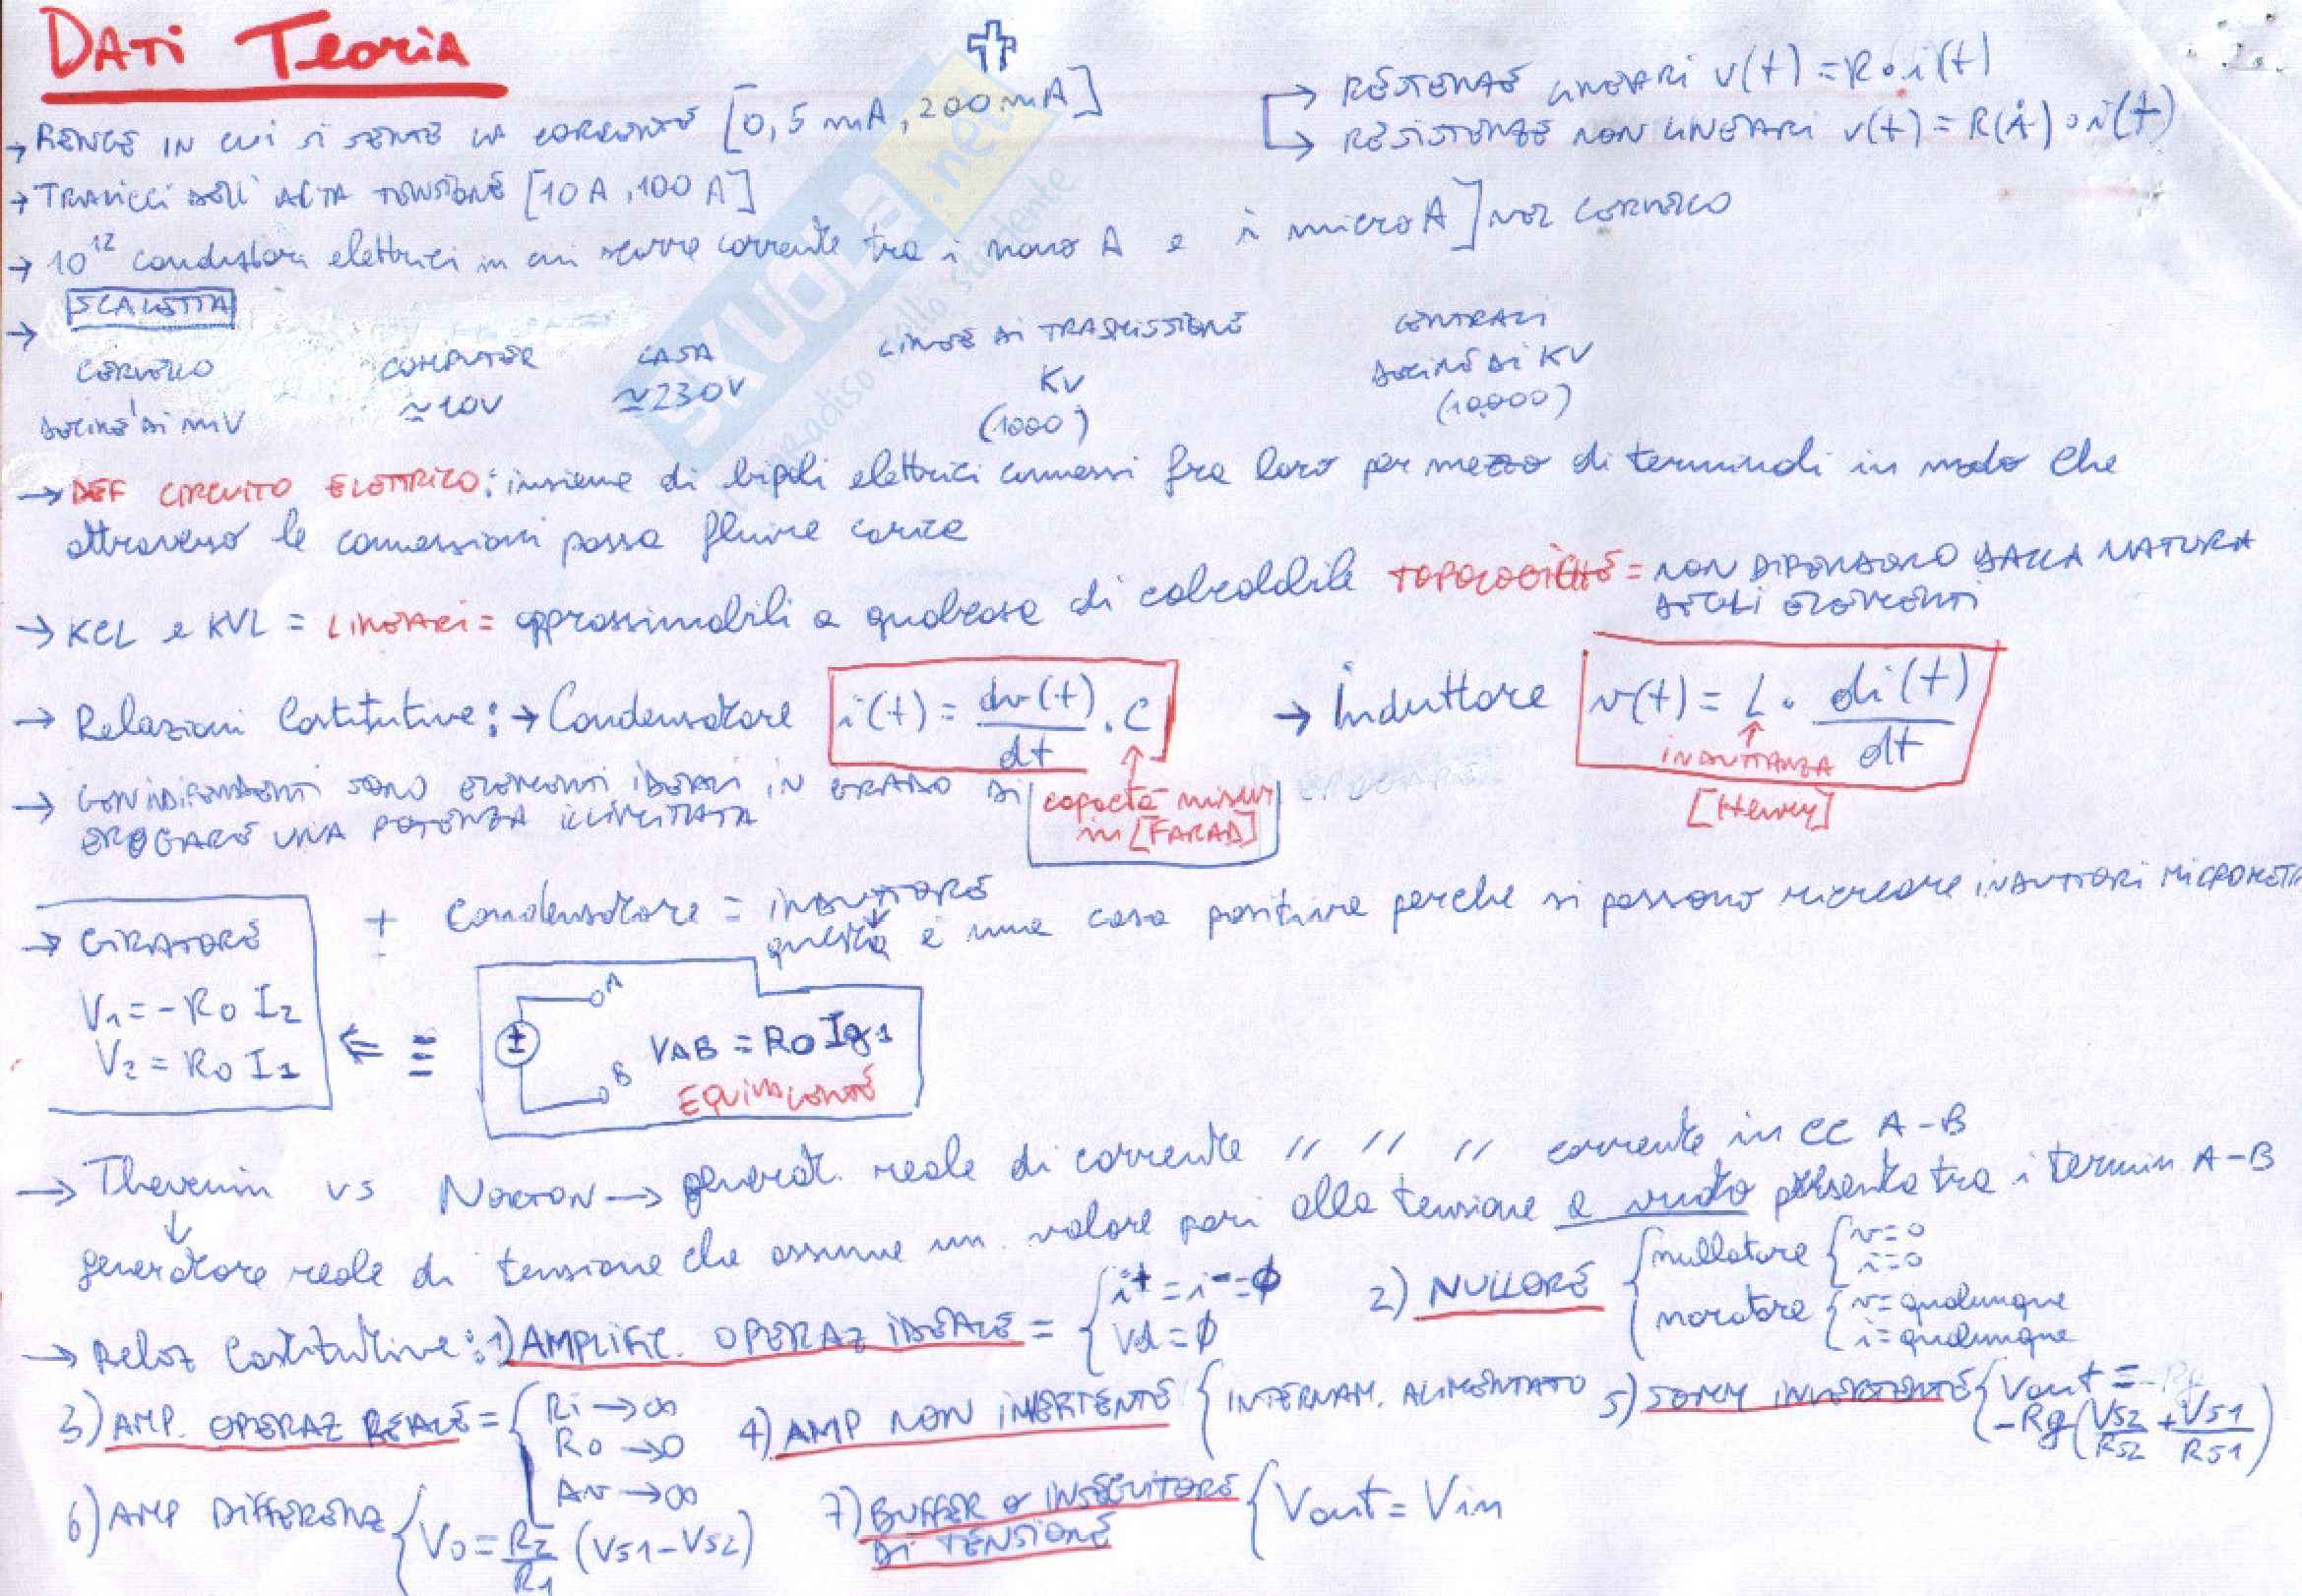 DATI TEORIA
→ RANGE IN CUI SI SENTE LA CORRENTE [0,5 mA, 200 mA]
→ RESISTENZE LINEARI v(t) = R·i(t)
→ RESISTENZE NON LINEARI v(t) = R(A)·i(t)
→ TRALICCI DELL'ALTA TENSIONE [10 A, 100 A]
→ 10^12 conduttori elettrici in cui scorre corrente tra i nano A e i micro A] NEL CERVELLO
→ SCALETTA
CERVELLO COMPUTER CASA LINEE DI TRASMISSIONE CENTRALI
DECINE DI mV ≃10V ≃230V KV DECINE DI KV
(1000) (10.000)
→ DEF CIRCUITO ELETTRICO: insieme di bipoli elettrici connessi fra loro per mezzo di terminali in modo che
attraverso le connessioni possa fluire carica
→ KCL e KVL = LINEARI = approssimabili a qualcosa di calcolabile TOPOLOGICHE = NON DIPENDONO DALLA NATURA
DEGLI ELEMENTI
→ Relazioni Costitutive: → Condensatore i(t) = dv(t)/dt · C → Induttore v(t) = L · di(t)/dt
capacità misur in [FARAD]
INDUTTANZA
[Henry]
→ GEN INDIPENDENTI SONO ELEMENTI IDEALI IN GRADO DI
EROGARE UNA POTENZA ILLIMITATA
→ GIRATORE + Condensatore = INDUTTORE
questa è una cosa positiva perche si possono ricreare INDUTTORI MICROMETR
V1 = -R0 I2
V2 = R0 I1
⇐ ≡
A
B
VAB = R0 Ig1
EQUIVALENTE
→ Thevenin vs NORTON → generat. reale di corrente // // // corrente in CC A-B
↓
generatore reale di tensione che assume un valore pari alla tensione a vuoto presenta tra i termin A-B
→ Relaz Costitutive: 1) AMPLIFIC. OPERAZ IDEALE = { i+ = i- = Ø
Vd = Ø
2) NULLORE { nullatore { v=0
i=0
noratore { v=qualunque
i=qualunque
3) AMP. OPERAZ REALE = { Ri → ∞
Ro → 0
Av → ∞
4) AMP NON INVERTENTE { INTERNAM. ALIMENTATO
5) SOMM INVERTENTE { Vout =
-Rg (VS2/RS2 + VS1/RS1)
6) AMP DIFFERENZ { V0 = R2/R1 (VS1-VS2)
7) BUFFER O INSEGUITORE
DI TENSIONE { Vout = Vin
SKUOLA.net
il paradiso dello studente